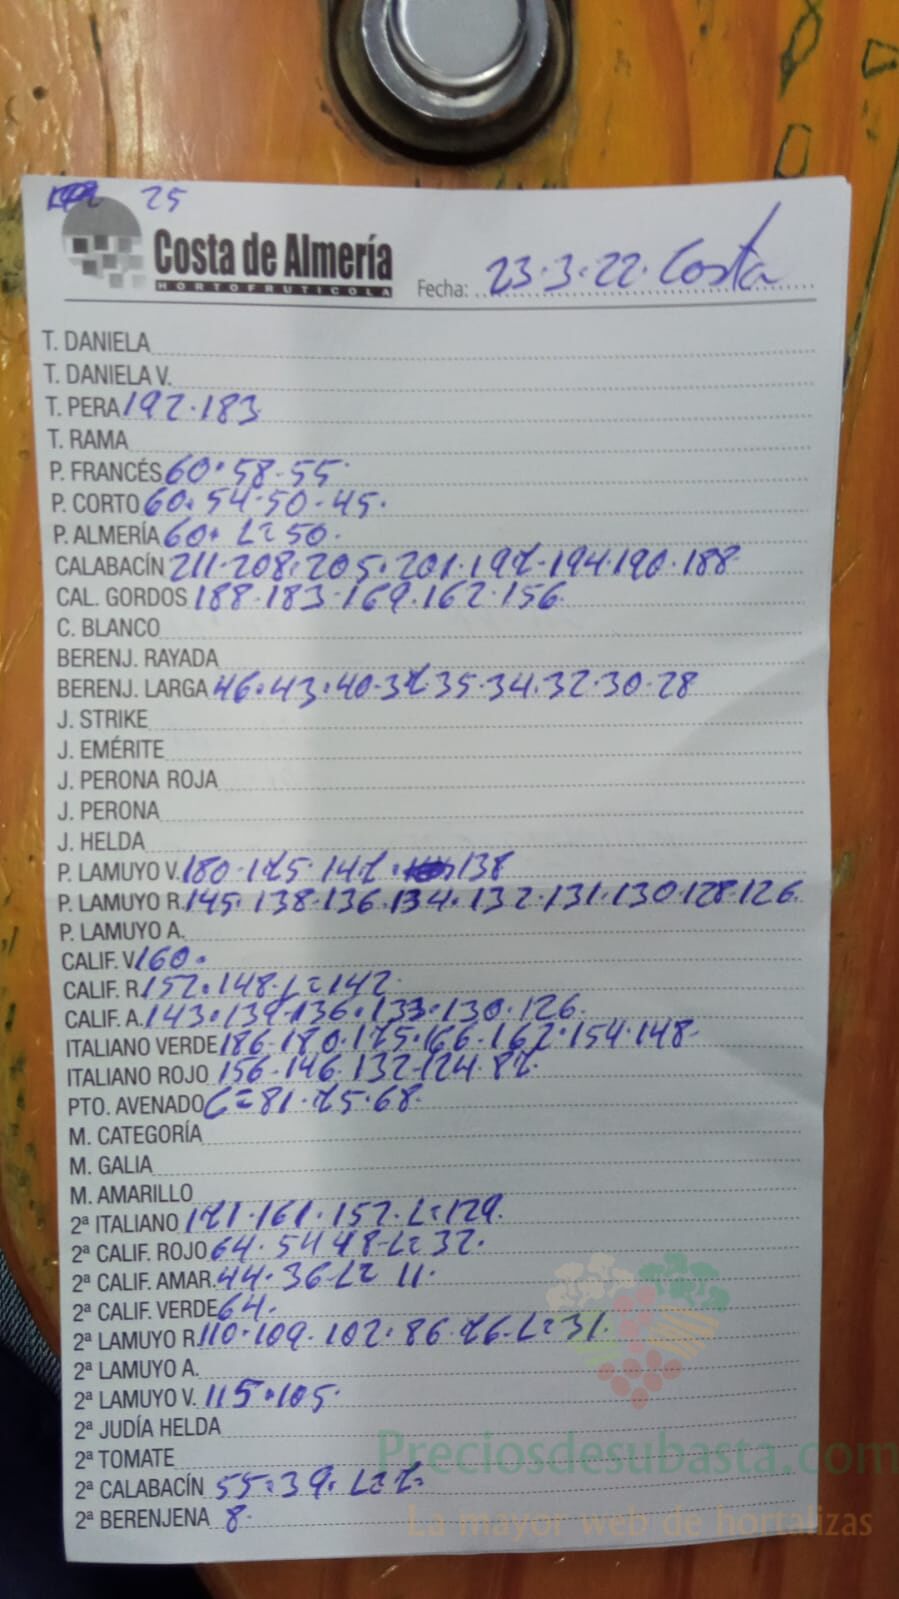 25
Costa de Almería
HORTOFRUTICOLA
Fecha: 23.3.22. Costa
T. DANIELA
T. DANIELA V.
T. PERA 192.183
T. RAMA
P. FRANCÉS 60.58.55.
P. CORTO 60.54.50.45.
P. ALMERÍA 60. L=50.
CALABACÍN 211.208.205.201.197.194.190.188
CAL. GORDOS 188.183.169.162.156
C. BLANCO
BERENJ. RAYADA
BERENJ. LARGA 46.43.40.37.35.34.32.30.28
J. STRIKE
J. EMÉRITE
J. PERONA ROJA
J. PERONA
J. HELDA
P. LAMUYO V. 180.175.147.138
P. LAMUYO R. 145.138.136.134.132.131.130.128.126.
P. LAMUYO A.
CALIF. V. 160.
CALIF. R. 152.148.L=142.
CALIF. A. 143.139.136.133.130.126.
ITALIANO VERDE 186.180.175.166.162.154.148
ITALIANO ROJO 156.146.132.124.87.
PTO. AVENADO C=81.75.68.
M. CATEGORÍA
M. GALIA
M. AMARILLO
2ª ITALIANO 171.161.157.L=129.
2ª CALIF. ROJO 64.54.48.L=32.
2ª CALIF. AMAR. 44.36.L=11.
2ª CALIF. VERDE 64.
2ª LAMUYO R. 110.109.102.86.76.L=31.
2ª LAMUYO A.
2ª LAMUYO V. 115.105.
2ª JUDÍA HELDA
2ª TOMATE
2ª CALABACÍN 55.39.L=7.
2ª BERENJENA 8.
Preciosdesubasta.com
La mayor web de hortalizas